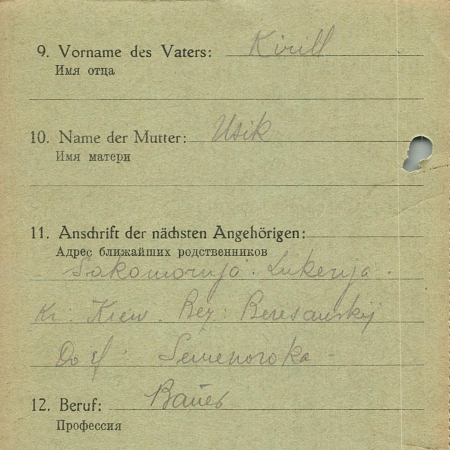 9. Vorname des Vaters: Kirill
Имя отца
10. Name der Mutter: Usik
Имя матери
11. Anschrift der nächsten Angehörigen:
Адрес ближайших родственников
Kr. Kiew. Rez: Beresanskij
Dorf: Semenowka
12. Beruf: Bauer
Профессия